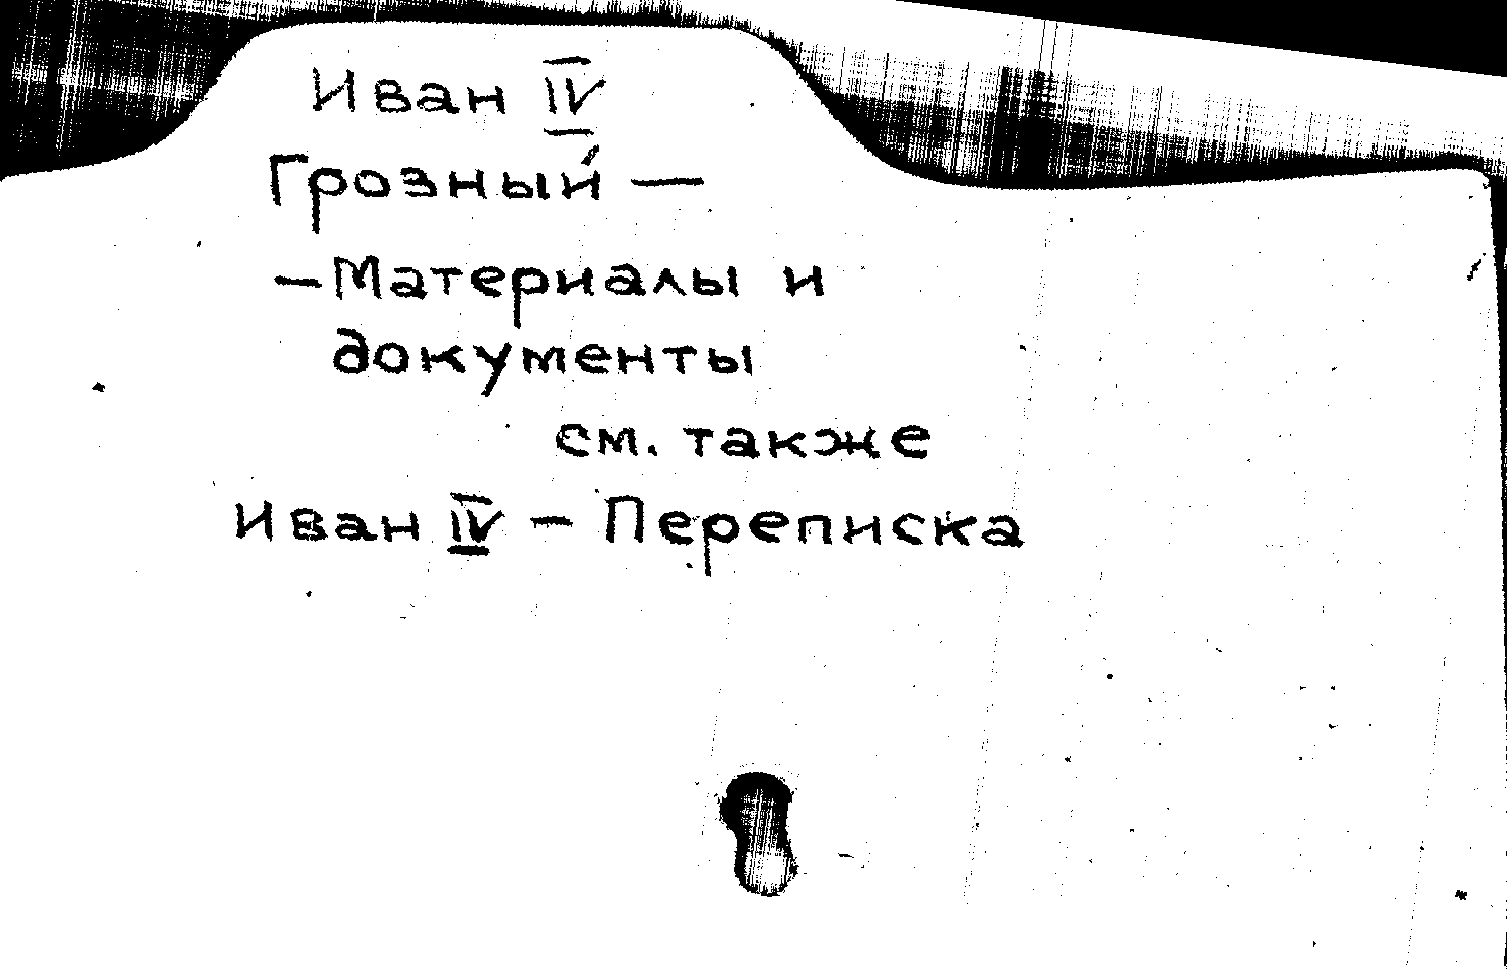 Иван IV
Грозный —
— Материалы и
документы
см. также
Иван IV — Переписка